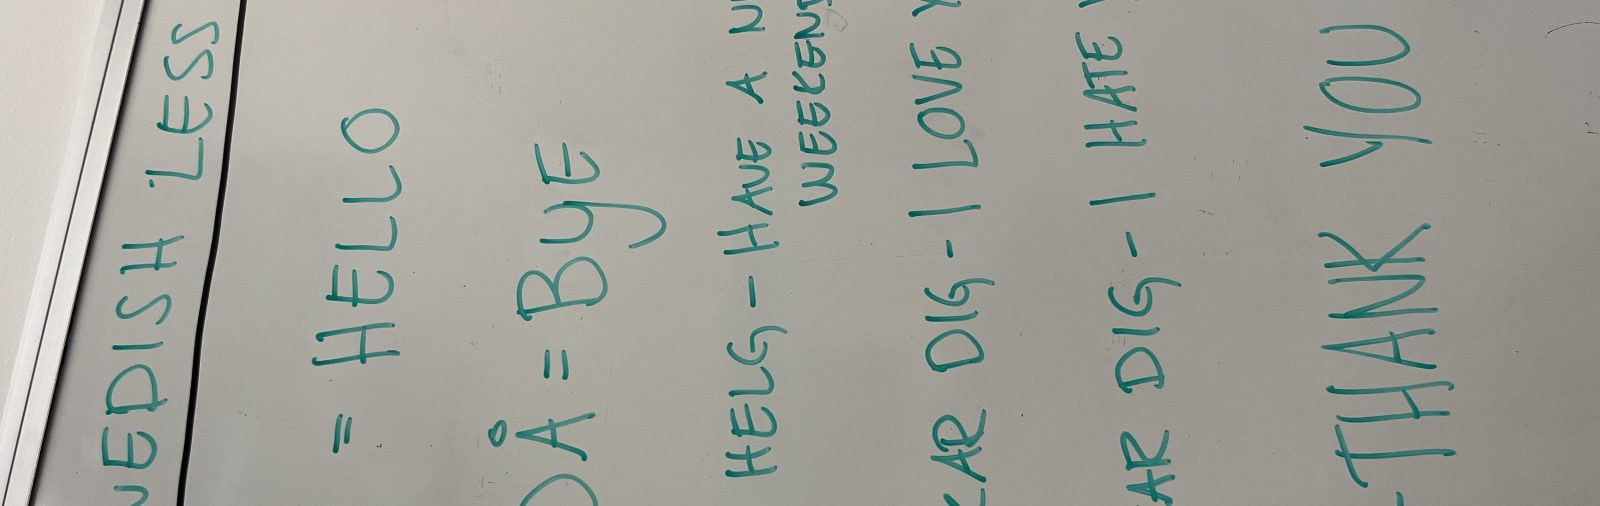 WEDISH LESS
= HELLO
DÅ = BYE
HELG - HAVE A N
WEEKEND
KAR DIG - I LOVE Y
AR DIG - I HATE
- THANK YOU